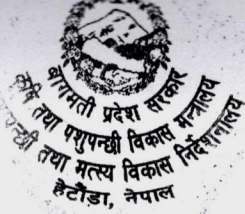 बागमती प्रदेश सरकार
कृषि तथा पशुपन्छी विकास मन्त्रालय
पन्छी तथा मत्स्य विकास निर्देशनालय
हेटौंडा, नेपाल